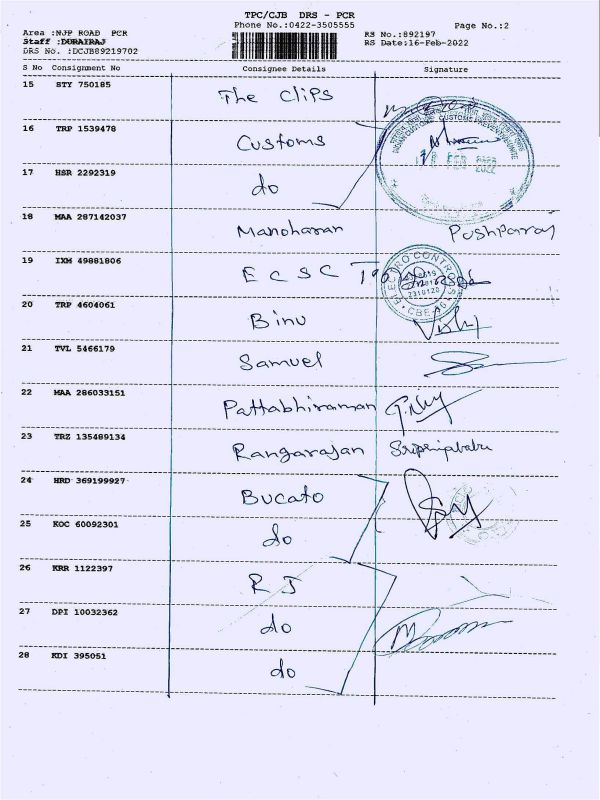 TPC/CJB DRS - PCR
Phone No.:0422-3505555 Page No.:2
Area :NJP ROAD PCR RS No.:892197
Staff :DURAIRAJ RS Date:16-Feb-2022
DRS No. :DCJB89219702
S No Consignment No Consignee Details Signature
15 STY 750185 The Clips
16 TRP 1539478 Customs
17 HSR 2292319 do
18 MAA 287142037 Manoharan Pushparaj
19 IXM 49881806 E C S C
20 TRP 4604061 Binu
21 TVL 5466179 Samuel
22 MAA 286033151 Pattabhiraman
23 TRZ 135489134 Rangarajan
24 HRD 369199927 Bucato
25 KOC 60092301 do
26 KRR 1122397 R J
27 DPI 10032362 do
28 KDI 395051 do